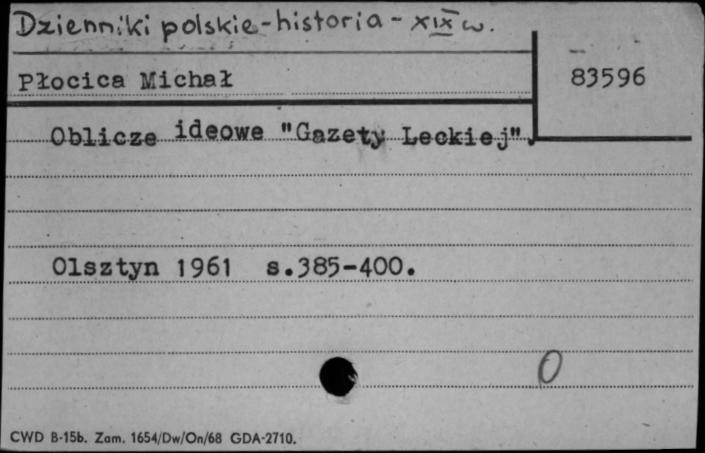 Dzienniki polskie - historia - XIX w.
Płocica Michał
83596
Oblicze ideowe "Gazety Leckiej".
Olsztyn 1961 s.385-400.
0
CWD B-15b. Zam. 1654/Dw/On/68 GDA-2710.